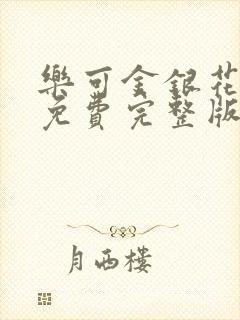 樂可金銀花
免費完整版
月西樓